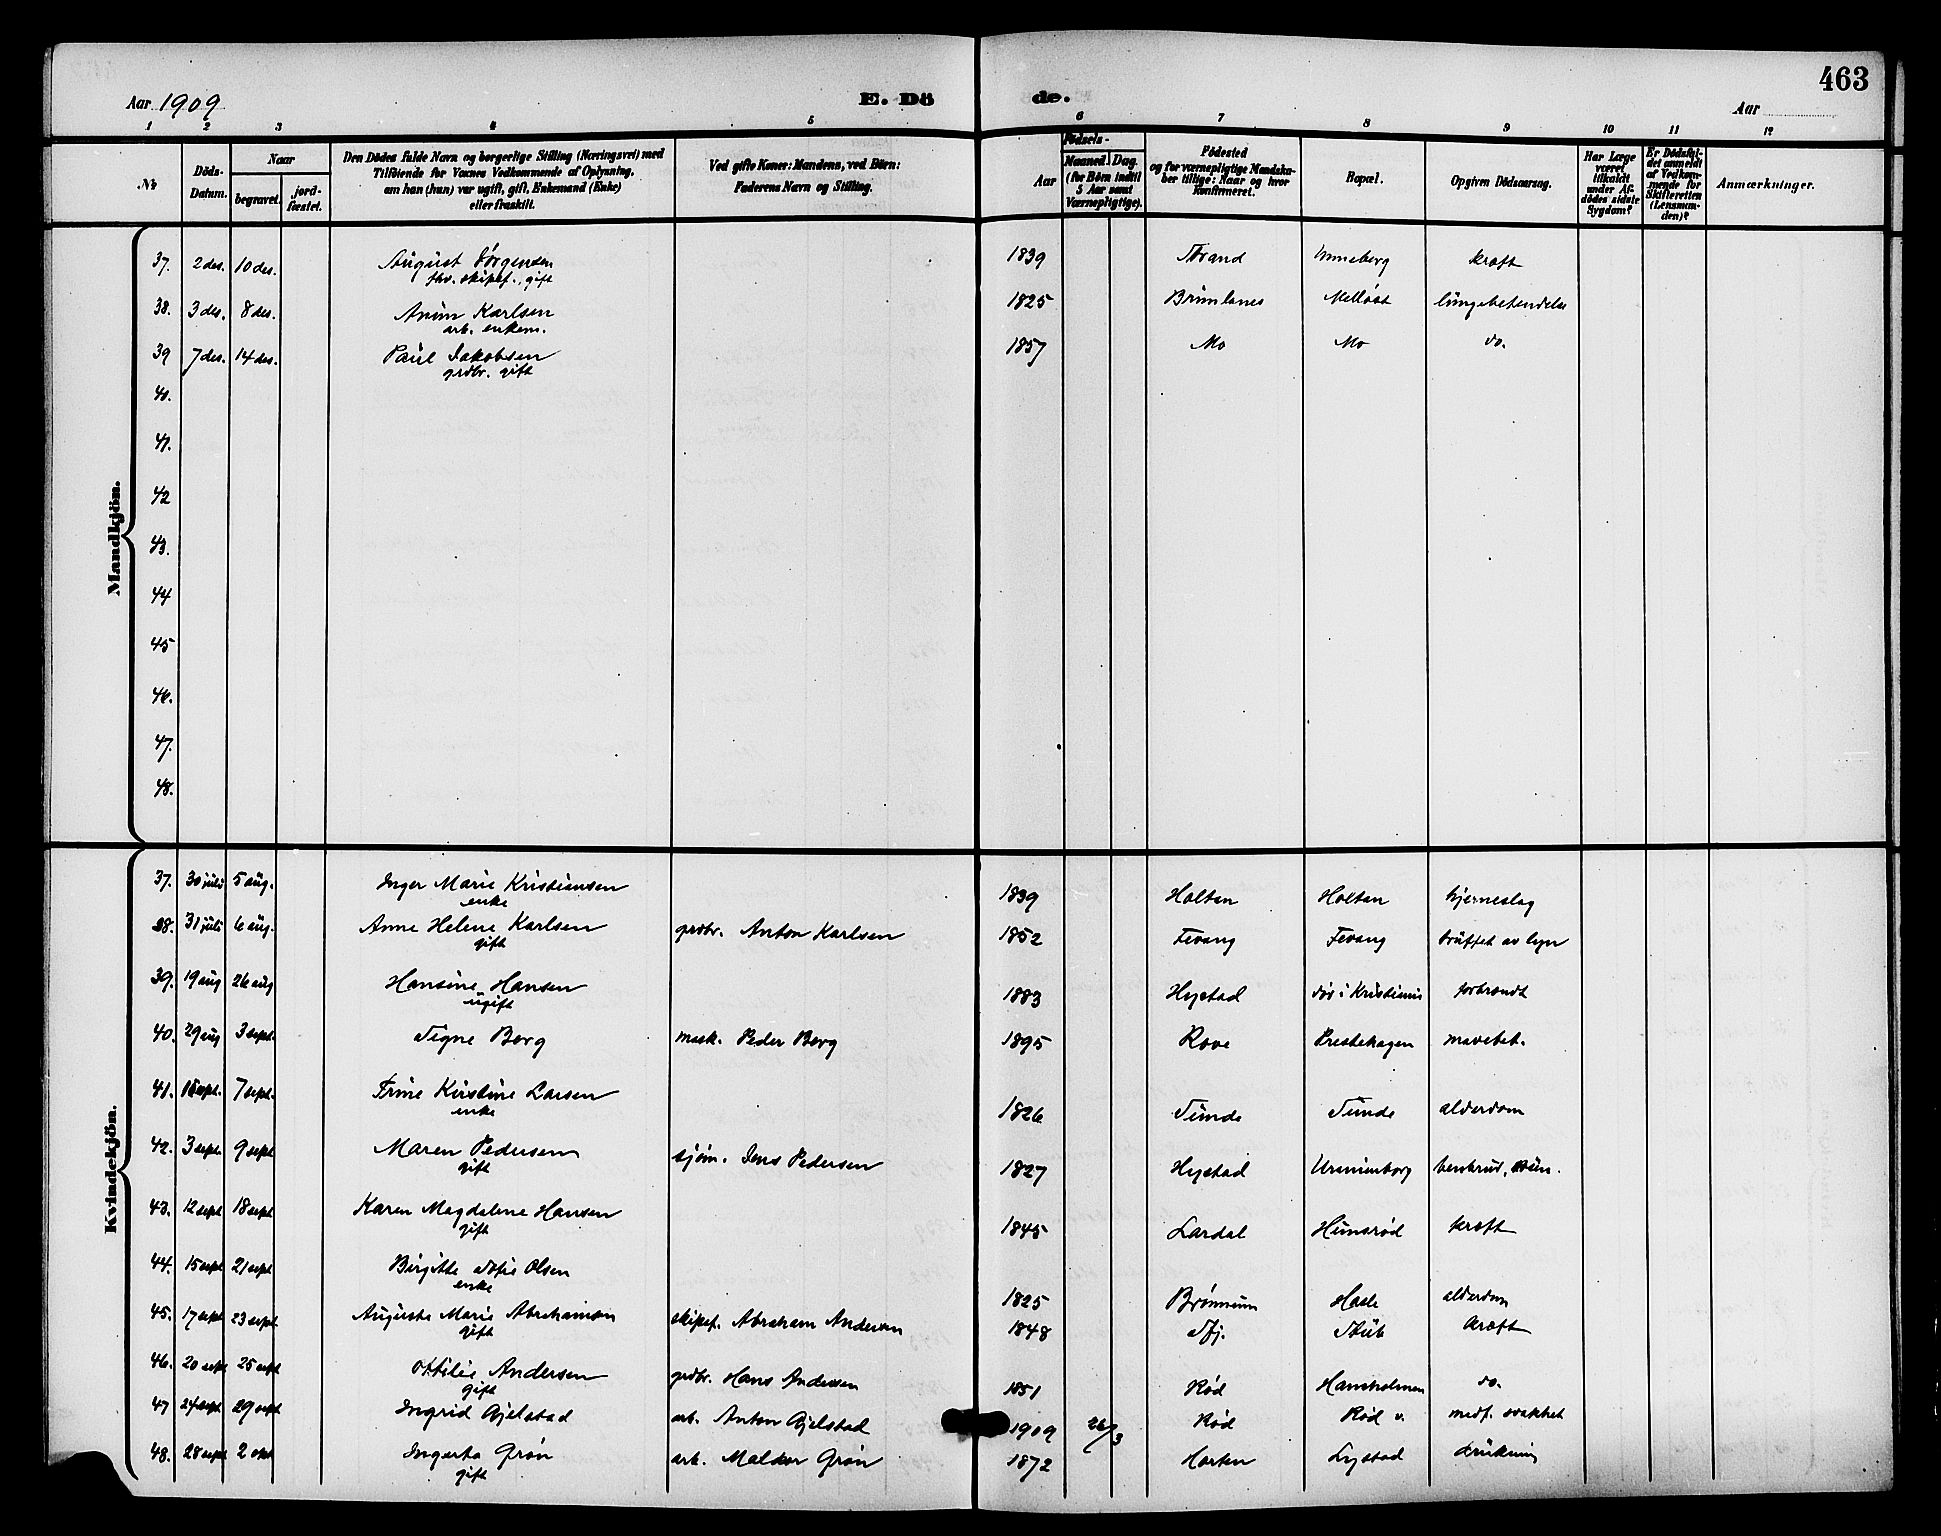 463
Aar 1909 E. Dö de. Aar
1 2 3 4 5 6 7 8 9 10 11 12
№
Döds-Datum.
Naar
begravet.
jord-fæstet.
Den Dödes fulde Navn og borgerlige Stilling (Næringsvei) med
Tilföiende for Voxnes Vedkommende af Oplysning,
om han (hun) var ugift, gift, Enkemand (Enke)
eller fraskilt.
Ved gifte Koner: Mandens, ved Börn:
Faderens Navn og Stilling.
Födsels-
Aar
Maaned. Dag.
(for Börn indtil
5 Aar samt
Værnepligtige).
Födested
og for værnepligtige Mandska-
ber tillige: Naar og hvor
konfirmeret.
Bopæl.
Opgiven Dödsaarsag.
Har Læge
været
tilkaldt
under Af-
dödes sidste
Sygdom?
Er Dödsfal-
det anmeldt
af Vedkom-
mende for
Skifteretten
(Lensman-
den)?
Anmærkninger.
Mandkjön.
37. 2 des. 10 des. August Jörgensen 1839 Strand Unneberg kræft
fhv. skipsf., gift
38. 3 des. 8 des. Karlsen 1825 Brunlanes Melløst lungebetendelse
arb. enkem.
39 7 des. 14 des. Paul Jakobsen 1857 Mo Mo do.
grdbr. gift
40.
41.
42
43.
44
45
46.
47.
48.
Kvindekjön.
37. 30 juli 5 aug. Inger Marie Kristiansen 1839 Holtan Holtan hjerneslag
enke
38. 31 juli 6 aug. Anne Helene Karlsen grdbr. Anton Karlsen 1852 Fevang Fevang truffet av lyn
gift
39. 19 aug 26 aug Hansine Hansen 1883 Hystad død i Kristiania forbrændt
ugift
40. 29 aug 3 sept. Signe Berg mask. Peder Berg 1895 Rove Prestehagen mavebet.
41. sept. 7 sept. Trine Kirstine Larsen 1826 Sunde Sunde alderdom
enke
42. 3 sept. 9 sept Maren Pedersen sjøm. Jens Pedersen 1827 Hystad Uranienborg benbrud,
gift
43. 12 sept 18 sept Karen Magdalene Hansen 1845 Lardal Hunsrød kræft
gift
44. 15 sept 21 sept Birgitte Sofie Olsen 1825 Brønnum Hasle alderdom
enke
45. 17 sept 23 sept. Auguste Marie Abrahamsen skipsf. Abraham Andersen 1848 Sfj. Stub kræft
gift
46. 20 sept 25 sept Ottilie Andersen grdbr. Hans Andersen 1851 Rød Hansholmen do.
gift
47 24 sept 29 sept Ingrid Gjelstad arb. Anton Gjelstad 1909 26/3 Rød Rød v. medf. svakhet
48. 28 sept 2 okt Ingerta Grøn arb. Melder Grøn 1872 Horten Lystad drukning
gift